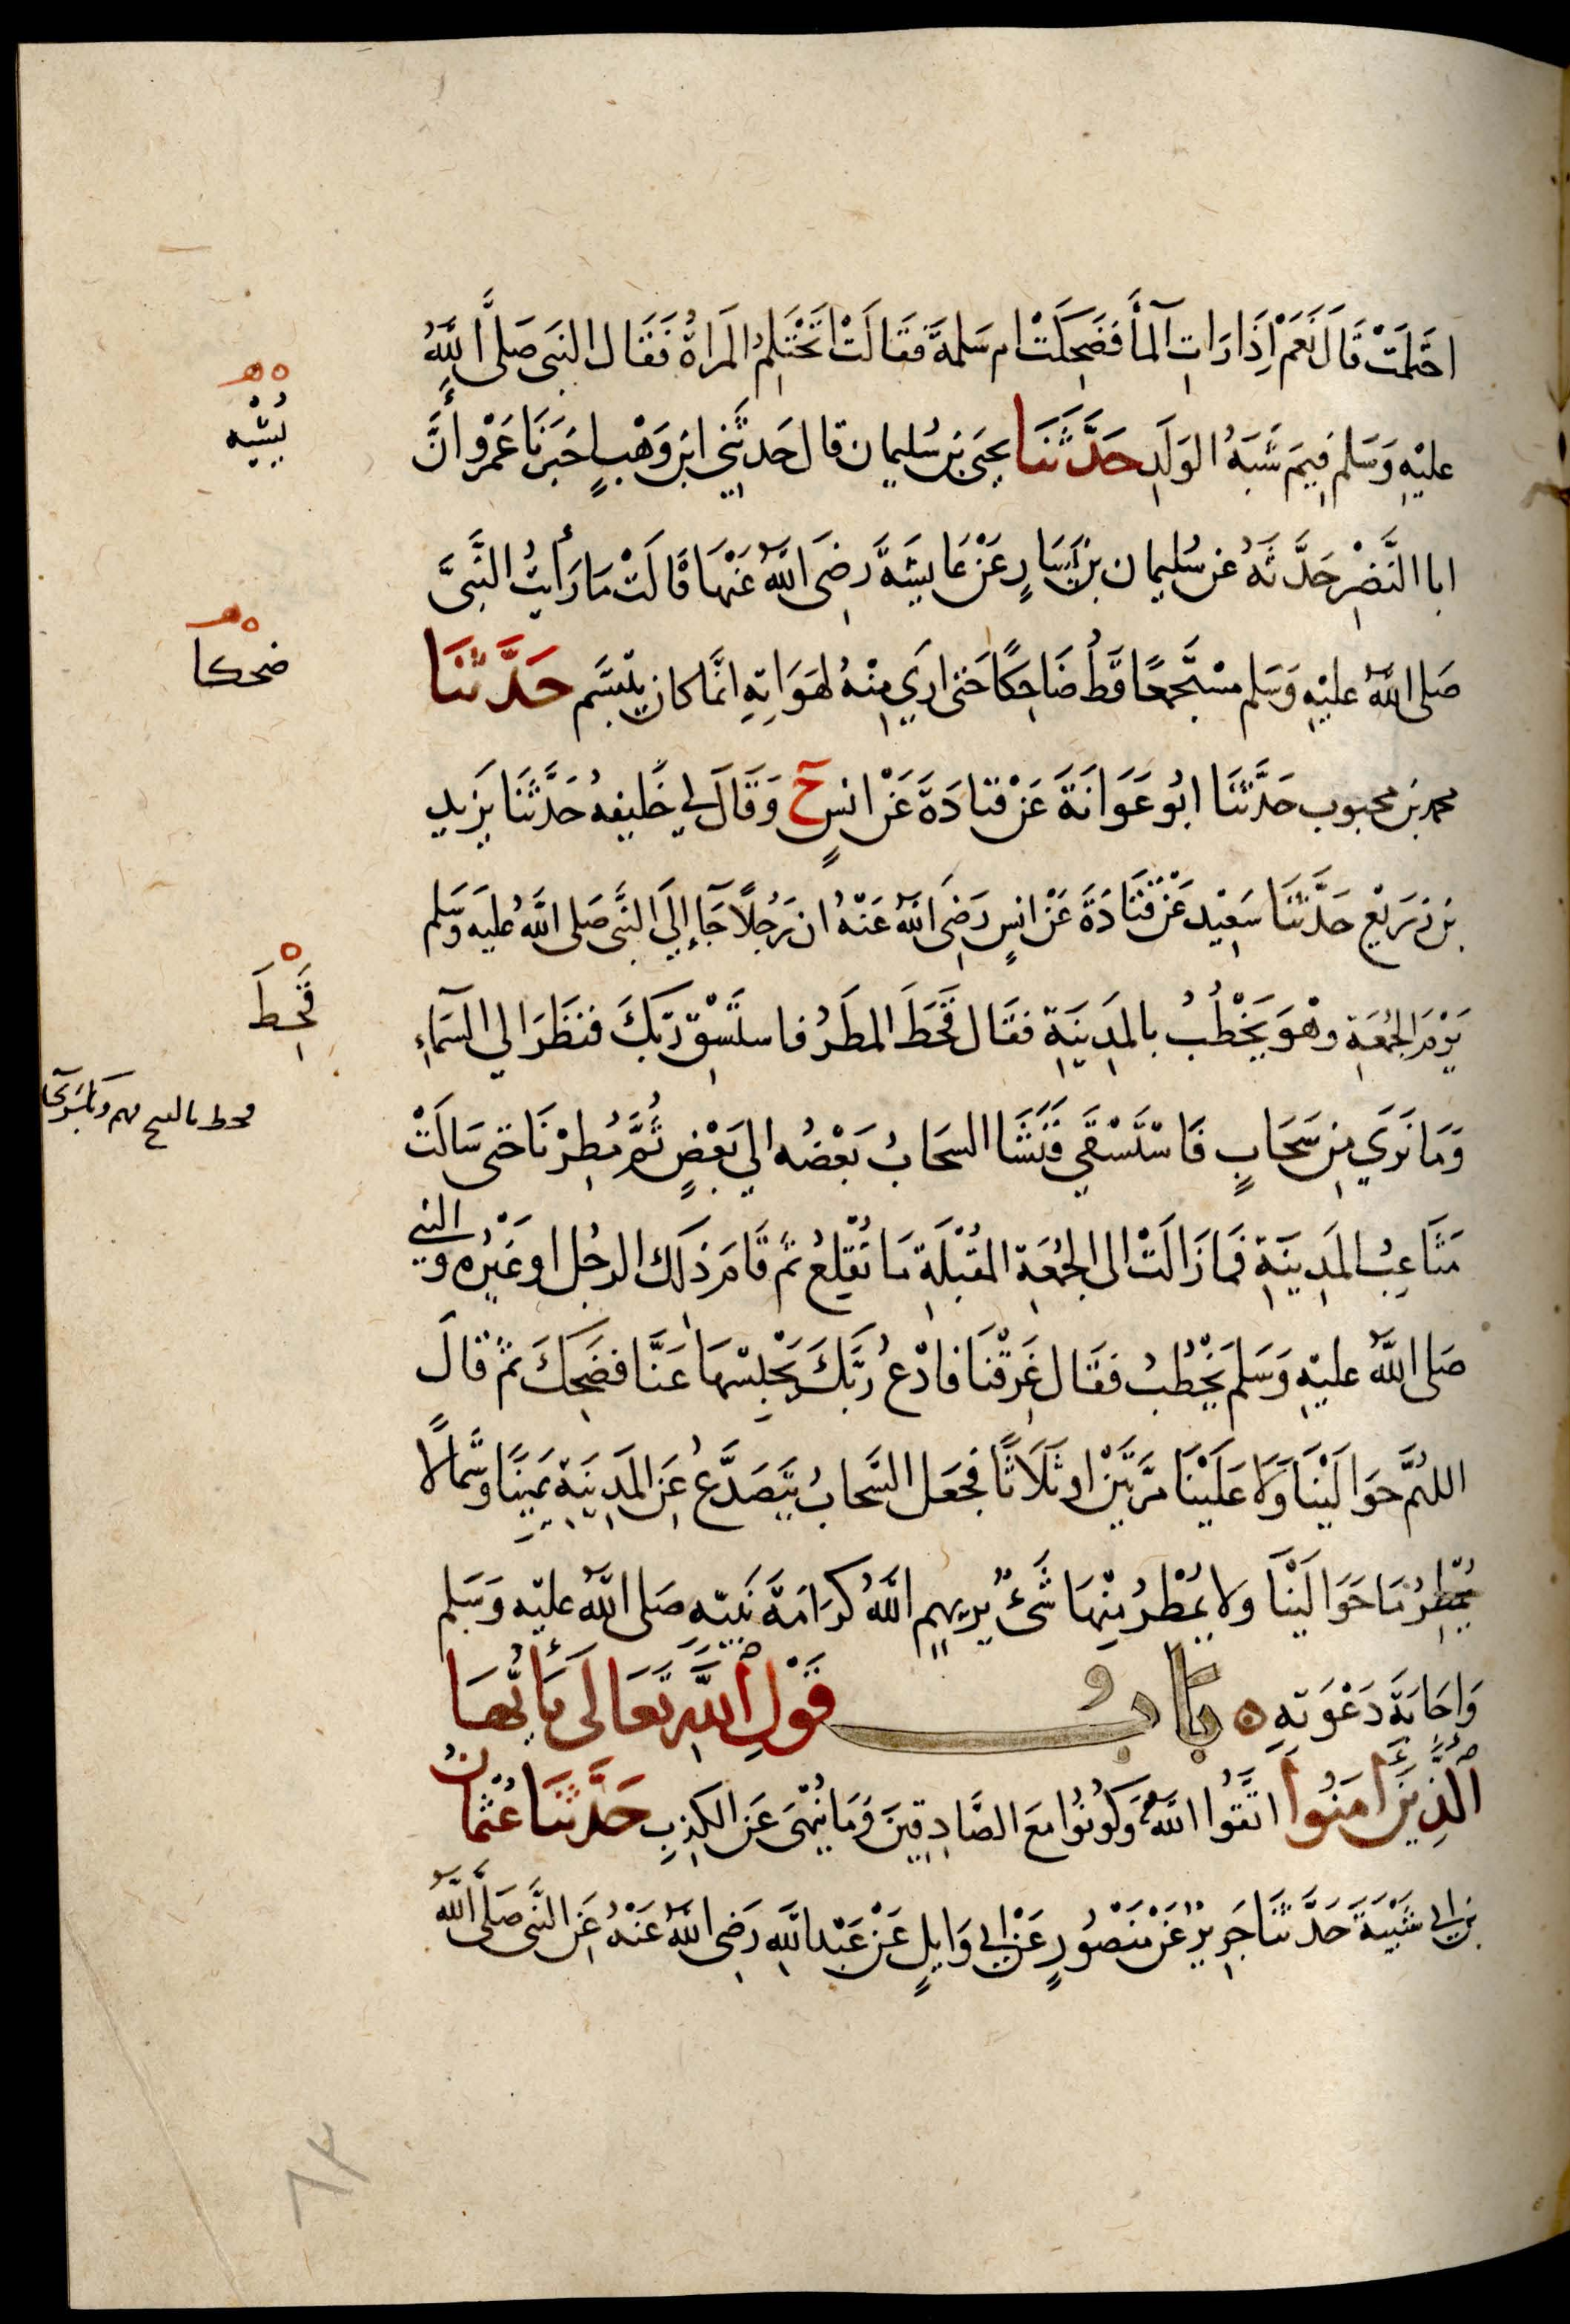 احْتَلَمَتْ قَالَ نَعَمْ اِذَا رَاتِ الْمَآءَ فَضَحِكَتْ ام سَلمةَ فَقَالَتْ اَتَحْتَلِمُ المَراةُ فَقَال النبَي صَلَّى اللَّهُ
عليْهِ وَسَلم فِيمَ شَبَهُ الوَلَدِ حَدَّثَنَا يحيَى بنُ سُليمان قال حَدثَنِي ابنُ وَهْبٍ اَخبَرَنَا عَمْرو أَنَّ
ابا النَّضْرِ حَدَّثَهُ عَن سُليمان بنِ يَسَارٍ عَنْ عَايشَةَ رَضِيَ اللَّهُ عَنْهَا قَالَتْ مَا رَأيتُ النَّبِيَّ
صَلى اللَّهُ عليْهِ وَسَلم مسْتَجْمِعًا قَطُّ ضَاحِكًا حَتى اَرَي مِنْهُ لَهَوَاتِهِ انَّمَا كان يَتَبَسَّم حَدَّثَنَا
محمد بن محبوب حَدَّثَنَا ابُو عَوَانَةَ عَنْ قتادَةَ عَنْ انسٍ ح وَقَالَ لي خَليفهُ حَدَّثَنَا يَزيد
بن زُرَيْع حَدَّثَنَا سَعِيْد عَنْ قَتَادَةَ عَنْ انسٍ رَضِيَ اللَّهُ عَنْهُ ان رَجُلاً جَآءَ إِلَي النَّبي صَلى اللَّهُ عليَه وَسَلم
يَوْمَ الجُمُعَةِ وهْوَ يَخْطُبُ بالمَدِينَةِ فقَال قَحَطَ المطَرُ فاستَسْقِ رَبّكَ فنَظَرَ الي السَّمَاءِ
وَمَا نَرَي مِن سَحَابٍ فَاسْتَسْقَي فَنَشَا السحَابُ بَعْضُه الي بَعْضٍ ثُمَّ مُطِرْنَا حتى سَالَتْ
مَثَاعِبُ المَدِينَةِ فَمَا زَالَتْ الى الجُمُعَةِ المقْبلَةِ مَا تُقْلِعُ ثمَّ قَامَ ذَلك الرجُل او غَيْرُه و النبي
صَلى اللَّهُ عليْهِ وَسَلم يَخْطُبُ فقَال غَرِقْنَا فادْعُ رَبَّكَ يَحْبِسْهَا عَنَّا فضَحِكَ ثمَّ قالَ
اللهُمَّ حَوَالَيْنَا وَلَا عَلَيْنَا مَرَّتَيْنِ او ثَلَاثًا فجَعَل السَّحَابُ يَتَصَدَّعُ عَنِ المَدِينَةِ يَمِينًا وَشمَالًا
يُمْطَرُ مَا حَوَالَيْنَا ولا يُمْطَرُ مِنْهَا شَيْءٌ يُريهمِ اللَّهُ كرَامَةَ نَبيّه صَلى اللَّهُ عليْه وَسَلم
وَاِجَابَةَ دَعْوَتِهِ ه بَابُ قَوْلِ اللَّهِ تَعَالَى يَا أَيُّهَا
الَّذِينَ آمَنُوا اتَّقُوا اللَّهَ وَكُونُوا مَعَ الصَّادِقِينَ وَمَا يُنْهَى عَنِ الكذِبِ حَدَّثَنَا عُثمانُ
بن ابي شَيْبَةَ حَدَّثَنَا جَرِيرٌ عَنْ مَنْصُورٍ عَنْ ابي وَايلٍ عَنْ عَبْدِ اللَّهِ رَضِيَ اللَّهُ عَنْهُ عَنِ النَّبي صَلَّى اللَّهُ
ه ه
يُشْبِه
ه ه
ضحكا
ه
قَحِطَ
قحط بالفتح
٨٣